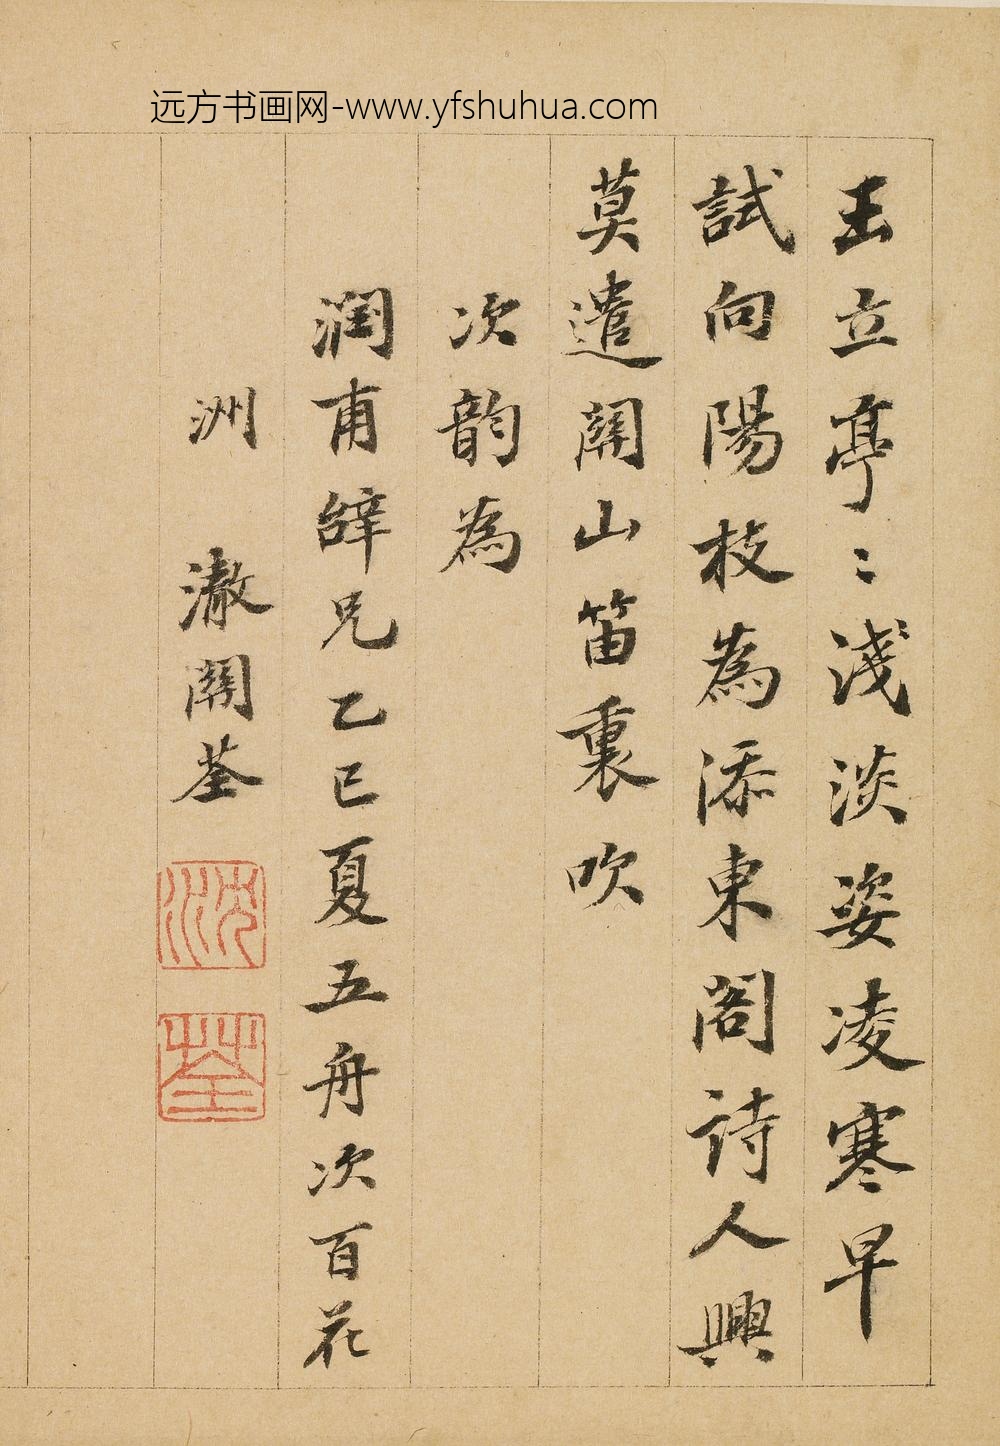 远方书画网-www.yfshuhua.com
玉立亭〻淺淡姿凌寒早
試向陽枝為添東閣詩人興
莫遣關山笛裏吹
次韵為
润甫辞兄乙巳夏五舟次百花
洲 澉關荃
沈
荃